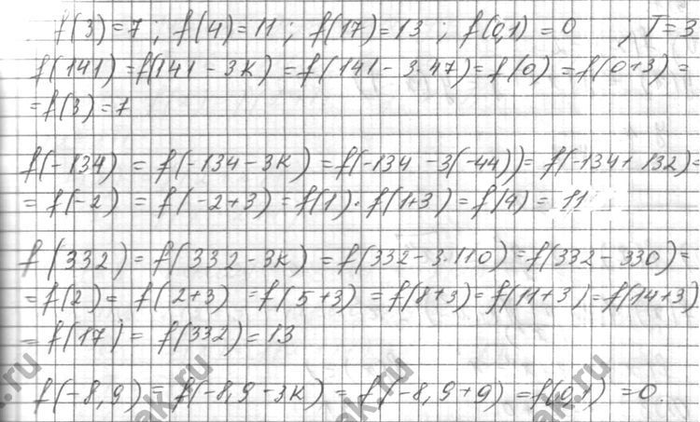 f(3)=7; f(4)=11; f(17)=13; f(0,1)=0 , T=3
f(141)=f(141-3k)=f(141-3·47)=f(0)=f(0+3)=
=f(3)=7
f(-134)=f(-134-3k)=f(-134-3(-44))=f(-134+132)=
=f(-2)=f(-2+3)=f(1)·f(1+3)=f(4)=11
f(332)=f(332-3k)=f(332-3·110)=f(332-330)=
=f(2)=f(2+3)=f(5+3)=f(8+3)=f(11+3)=f(14+3)
=f(17)=f(332)=13
f(-8,9)=f(-8,9-3k)=f(-8,9+9)=f(0,1)=0.